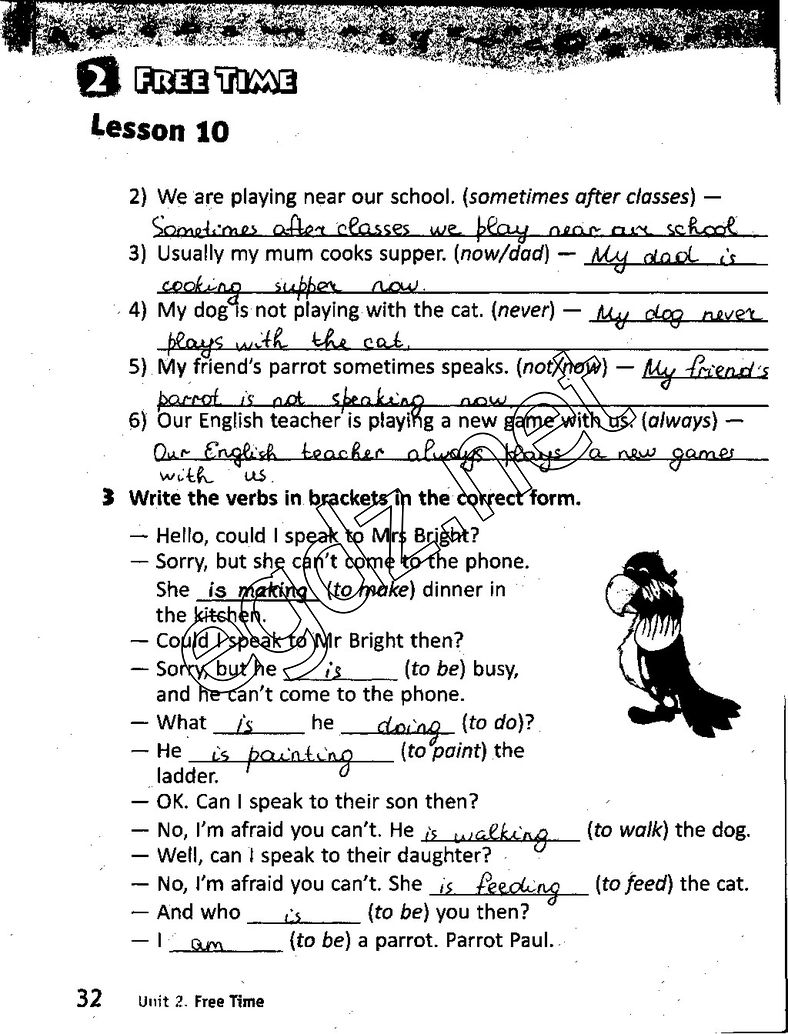 2 FREE TIME
Lesson 10
2) We are playing near our school. (sometimes after classes) —
Sometimes after classes we play near our school
3) Usually my mum cooks supper. (now/dad) — My dad is
cooking supper now.
4) My dog is not playing with the cat. (never) — My dog never
plays with the cat.
5) My friend's parrot sometimes speaks. (not/now) — My friend's
parrot is not speaking now
6) Our English teacher is playing a new game with us. (always) —
Our English teacher always plays a new games
with us.
3 Write the verbs in brackets in the correct form.
— Hello, could I speak to Mrs Bright?
— Sorry, but she can't come to the phone.
She is making (to make) dinner in
the kitchen.
— Could I speak to Mr Bright then?
— Sorry, but he is (to be) busy,
and he can't come to the phone.
— What is he doing (to do)?
— He is painting (to paint) the
ladder.
— OK. Can I speak to their son then?
— No, I'm afraid you can't. He is walking (to walk) the dog.
— Well, can I speak to their daughter?
— No, I'm afraid you can't. She is feeding (to feed) the cat.
— And who is (to be) you then?
— I am (to be) a parrot. Parrot Paul.
egdz.net
32 Unit 2. Free Time